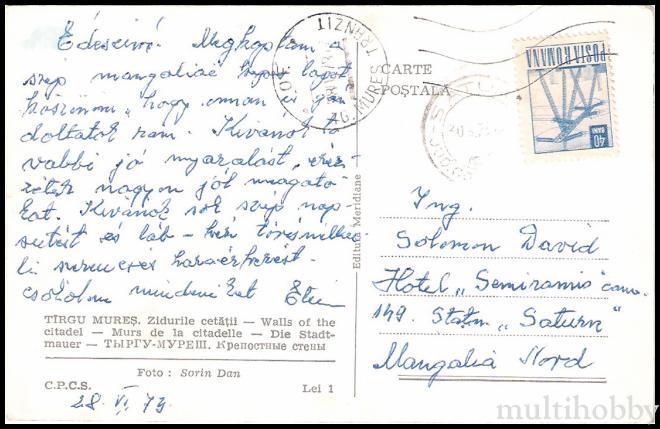 Édeseim! Megkaptam a
szép mangáliai képes lapot
köszönöm, hogy onnan is gon
doltatok rám. Kivánok to
vábbi jó nyaralást, érez-
zétek nagyon jól magato
kat. Kivánok sok szép nap-
sütést és láb- kéz törésnélkü-
li szerencsés hazaérkezést.
csókolom mindenkit
TÎRGU MUREȘ. Zidurile cetății — Walls of the
citadel — Murs de la citadelle — Die Stadt-
mauer — ТЫРГУ-МУРЕШ. Крепостные стены
Foto : Sorin Dan
C.P.C.S. Lei 1
28 VI 79
Editura Meridiane
CARTE
POȘTALĂ
TG. MUREȘ TRANZIT
POSTA ROMANA
40
BANI
Ing.
Solomon David
Hotel „Semiramis" cam.
149. Stațm „Saturn"
Mangalia Nord
multihobby